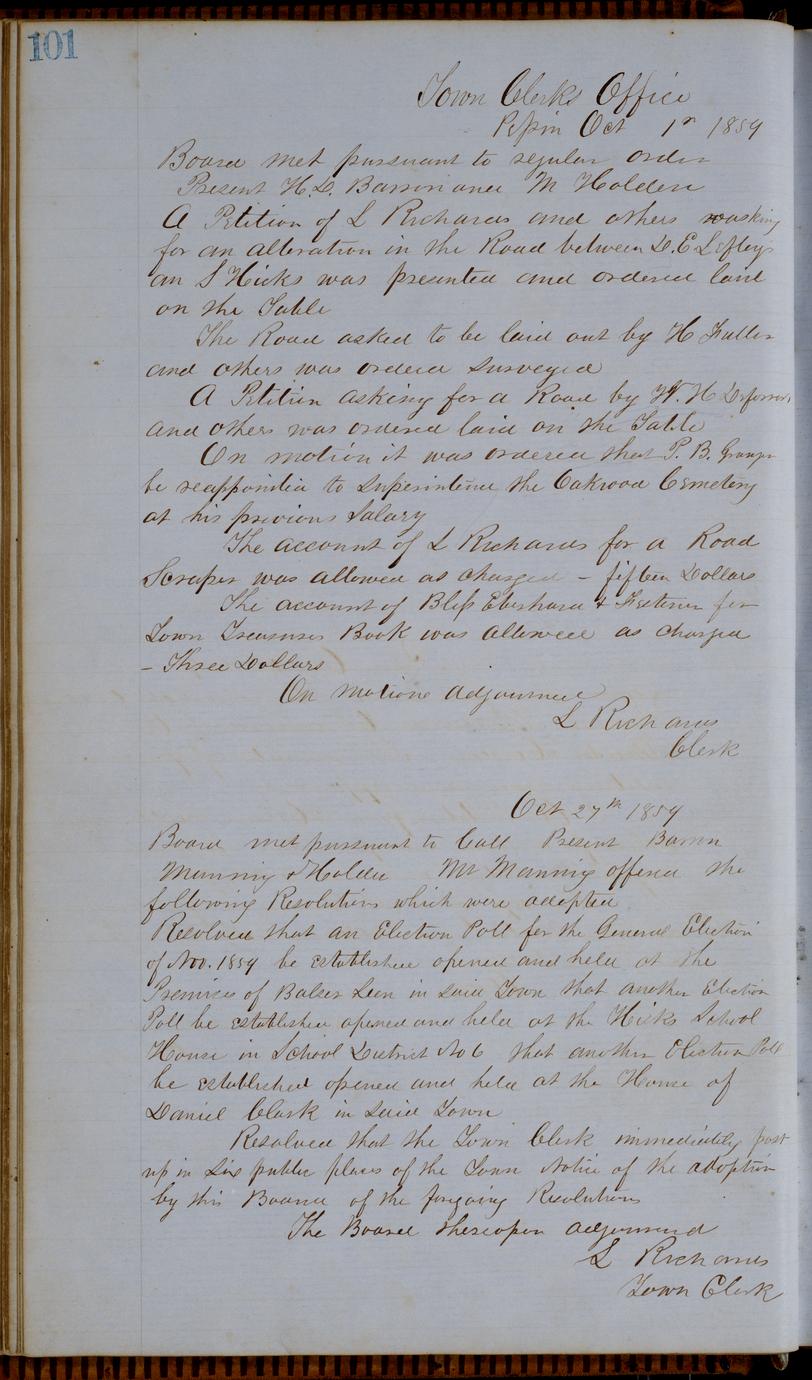 101
Town Clerks Office
Pepin Oct 1st 1859
Board met pursuant to regular order
Present H.D. Barron and M Holden
A Petition of L Richards and others asking
for an alteration in the Road between D.E.
an S Hicks was presented and ordered laid
on the Table
The Road asked to be laid out by H Fuller
and others was ordered surveyed
A Petition asking for a Road by H
and others was ordered laid on the Table
On motion it was ordered that P. B.
be reappointed to superintend the Oakwood Cemetery
at his previous Salary
The account of L Richards for a Road
Scraper was allowed as charged - fifteen Dollars
The account of Bliss Eberhard & for
Town Treasurers Book was allowed as charged
- Three Dollars
On motione adjourned
L Richards
Clerk
Oct 27th 1859
Board met pursuant to Call Present Barron
Manning & Holden Mr Manning offered the
following Resolutions which were adopted
Resolved that an Election Poll for the General Election
of Nov. 1859 be established opened and held at the
Premises of Balser in said Town that another Election
Poll be established opened and held at the Hicks School
House in School District No 6 that another Election Poll
be established opened and held at the House of
Daniel Clark in said Town
Resolved that the Town Clerk immediately post
up in Six public places of the Town Notice of the adoption
by this Board of the forgoing Resolutions
The Board thereopon adjourned
L Richards
Town Clerk